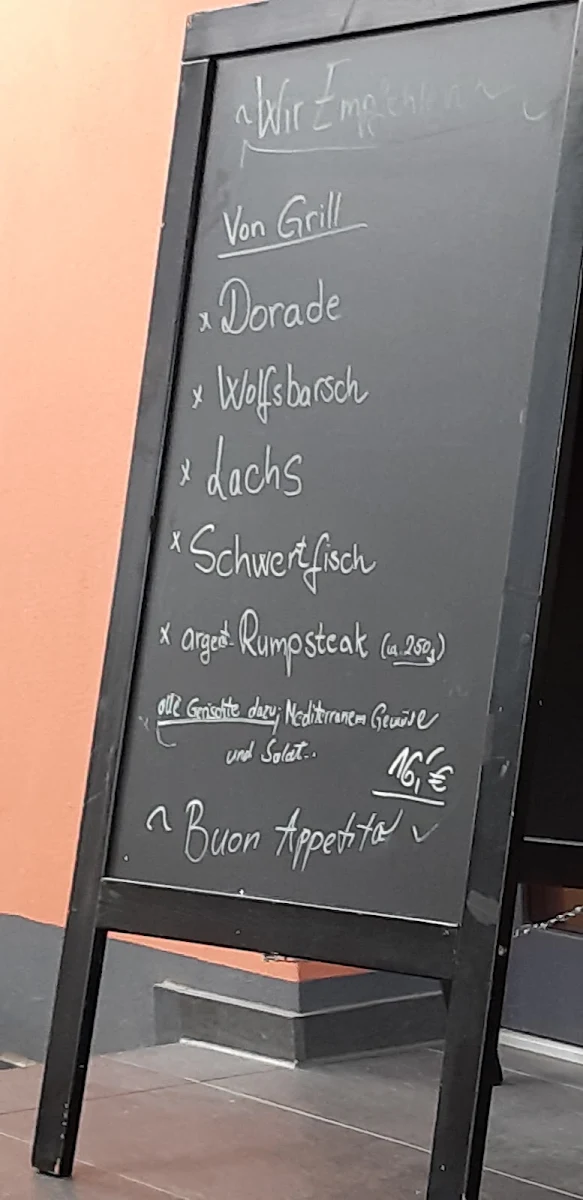 ~ Wir Empfehlen ~
Von Grill
x Dorade
x Wolfsbarsch
x Lachs
x Schwertfisch
x argent. Rumpsteak (ca. 250g)
alle Gerichte dazu; Mediterranem Gemüse
und Salat..
16,-€
~ Buon Appetito ~